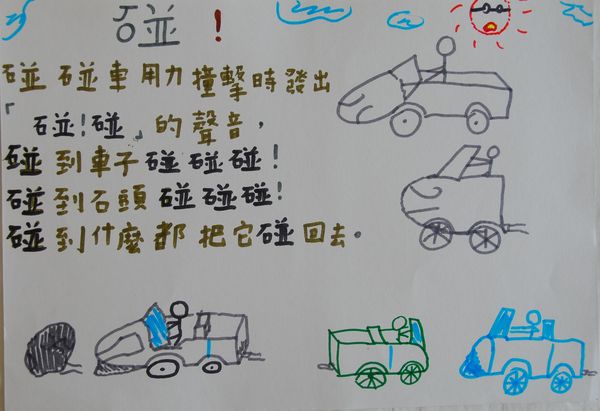 碰！
碰碰車用力撞擊時發出
「碰!碰」的聲音，
碰到車子碰碰碰!
碰到石頭碰碰碰!
碰到什麼都把它碰回去。